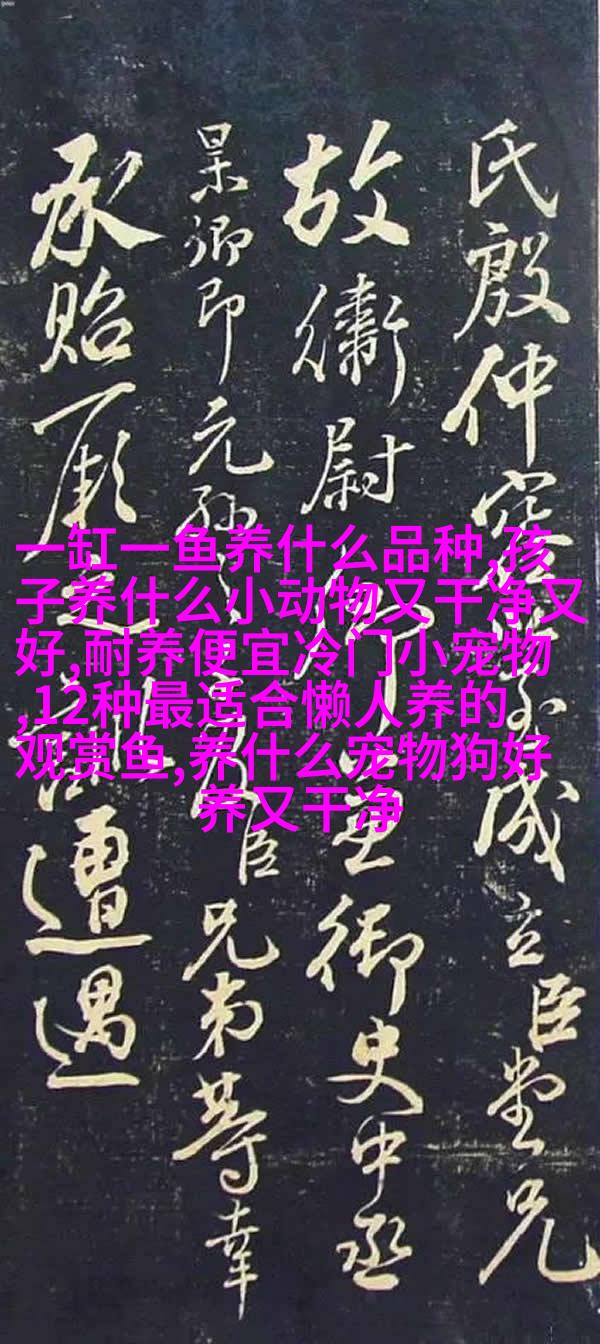 氏殷仲容以成立臣堂兄
故衛尉卿兼御史中丞
杲卿即元孫之臣兄弟等幸
承貽厥遭遇
一缸一鱼养什么品种,孩
子养什么小动物又干净又
好,耐养便宜冷门小宠物
,12种最适合懒人养的
观赏鱼,养什么宠物狗好
养又干净